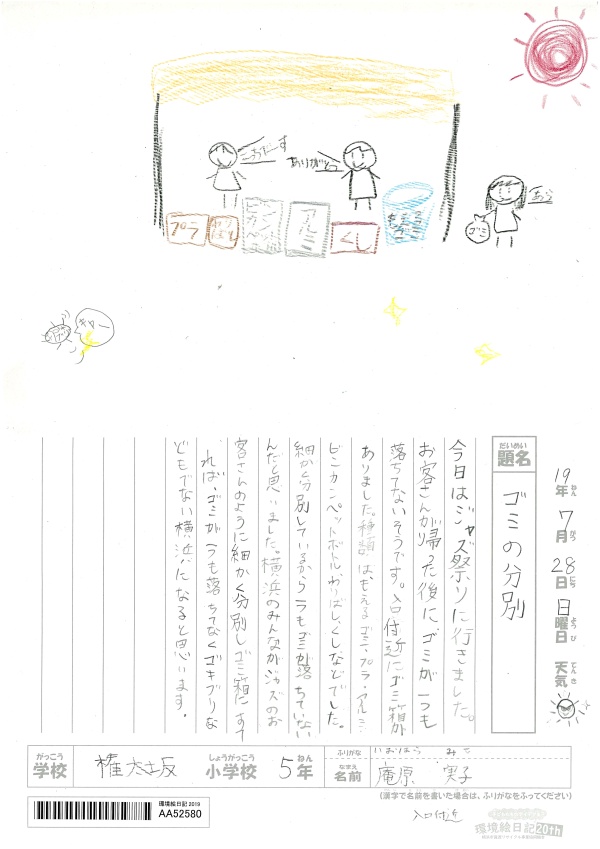 こおだーす
ありがとう
あら
プラ
わりばし
ビン
カン
ペット
アルミ
くし
もえるゴミ
ゴミ
キャー
19年 7月 28日 日曜日 天気
ねん がつ にち ようび てんき
だいめい
題名
ゴミの分別
今日はジャズ祭りに行きました。
お客さんが帰った後に、ゴミが一つも
落ちてないそうです。入口付近にゴミ箱が
ありました。種類は、もえるゴミ、プラ・アルミ・
ビンカンペットボトル、わりばし、くしなどでした。
細かく分別しているから一つもゴミが落ちていない
んだと思いました。横浜のみんながジャズのお
客さんのように細かく分別しゴミ箱にすて
れば、ゴミが一つも落ちてなくゴキブリな
どもでない横浜になると思います。
がっこう しょうがっこう ねん
学校 権太坂 小学校 5年
ふりがな いおりはら みこ
なまえ
名前 庵原 実子
(漢字で名前を書いた場合は、ふりがなをふってください)
環境絵日記2019
AA52580
入口付近
環境絵日記20th